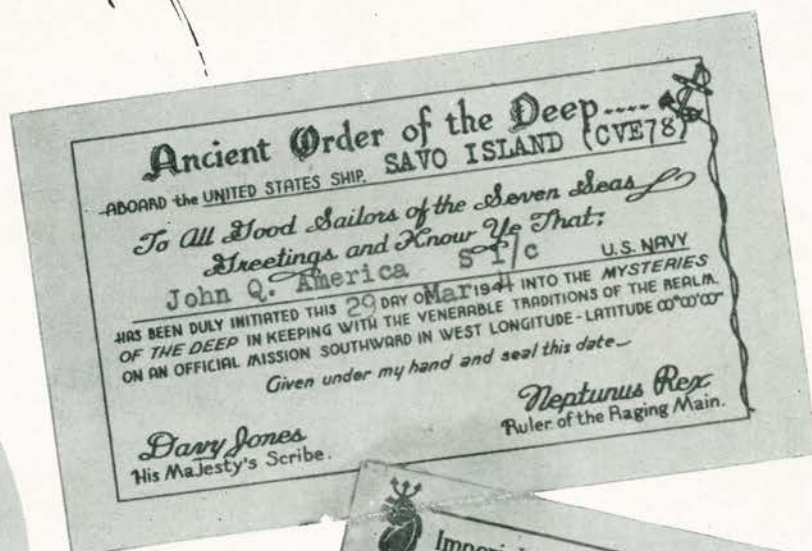 Ancient Order of the Deep....
ABOARD the UNITED STATES SHIP. SAVO ISLAND (CVE78)
To All Good Sailors of the Seven Seas
Greetings and Know Ye That:
John Q. America S 1/c U.S. NAVY
HAS BEEN DULY INITIATED THIS 29 DAY OF Mar 1944 INTO THE MYSTERIES
OF THE DEEP IN KEEPING WITH THE VENERABLE TRADITIONS OF THE REALM
ON AN OFFICIAL MISSION SOUTHWARD IN WEST LONGITUDE - LATITUDE 00°00'00"
Given under my hand and seal this date—
Davy Jones
His Majesty's Scribe.
Neptunus Rex
Ruler of the Raging Main.